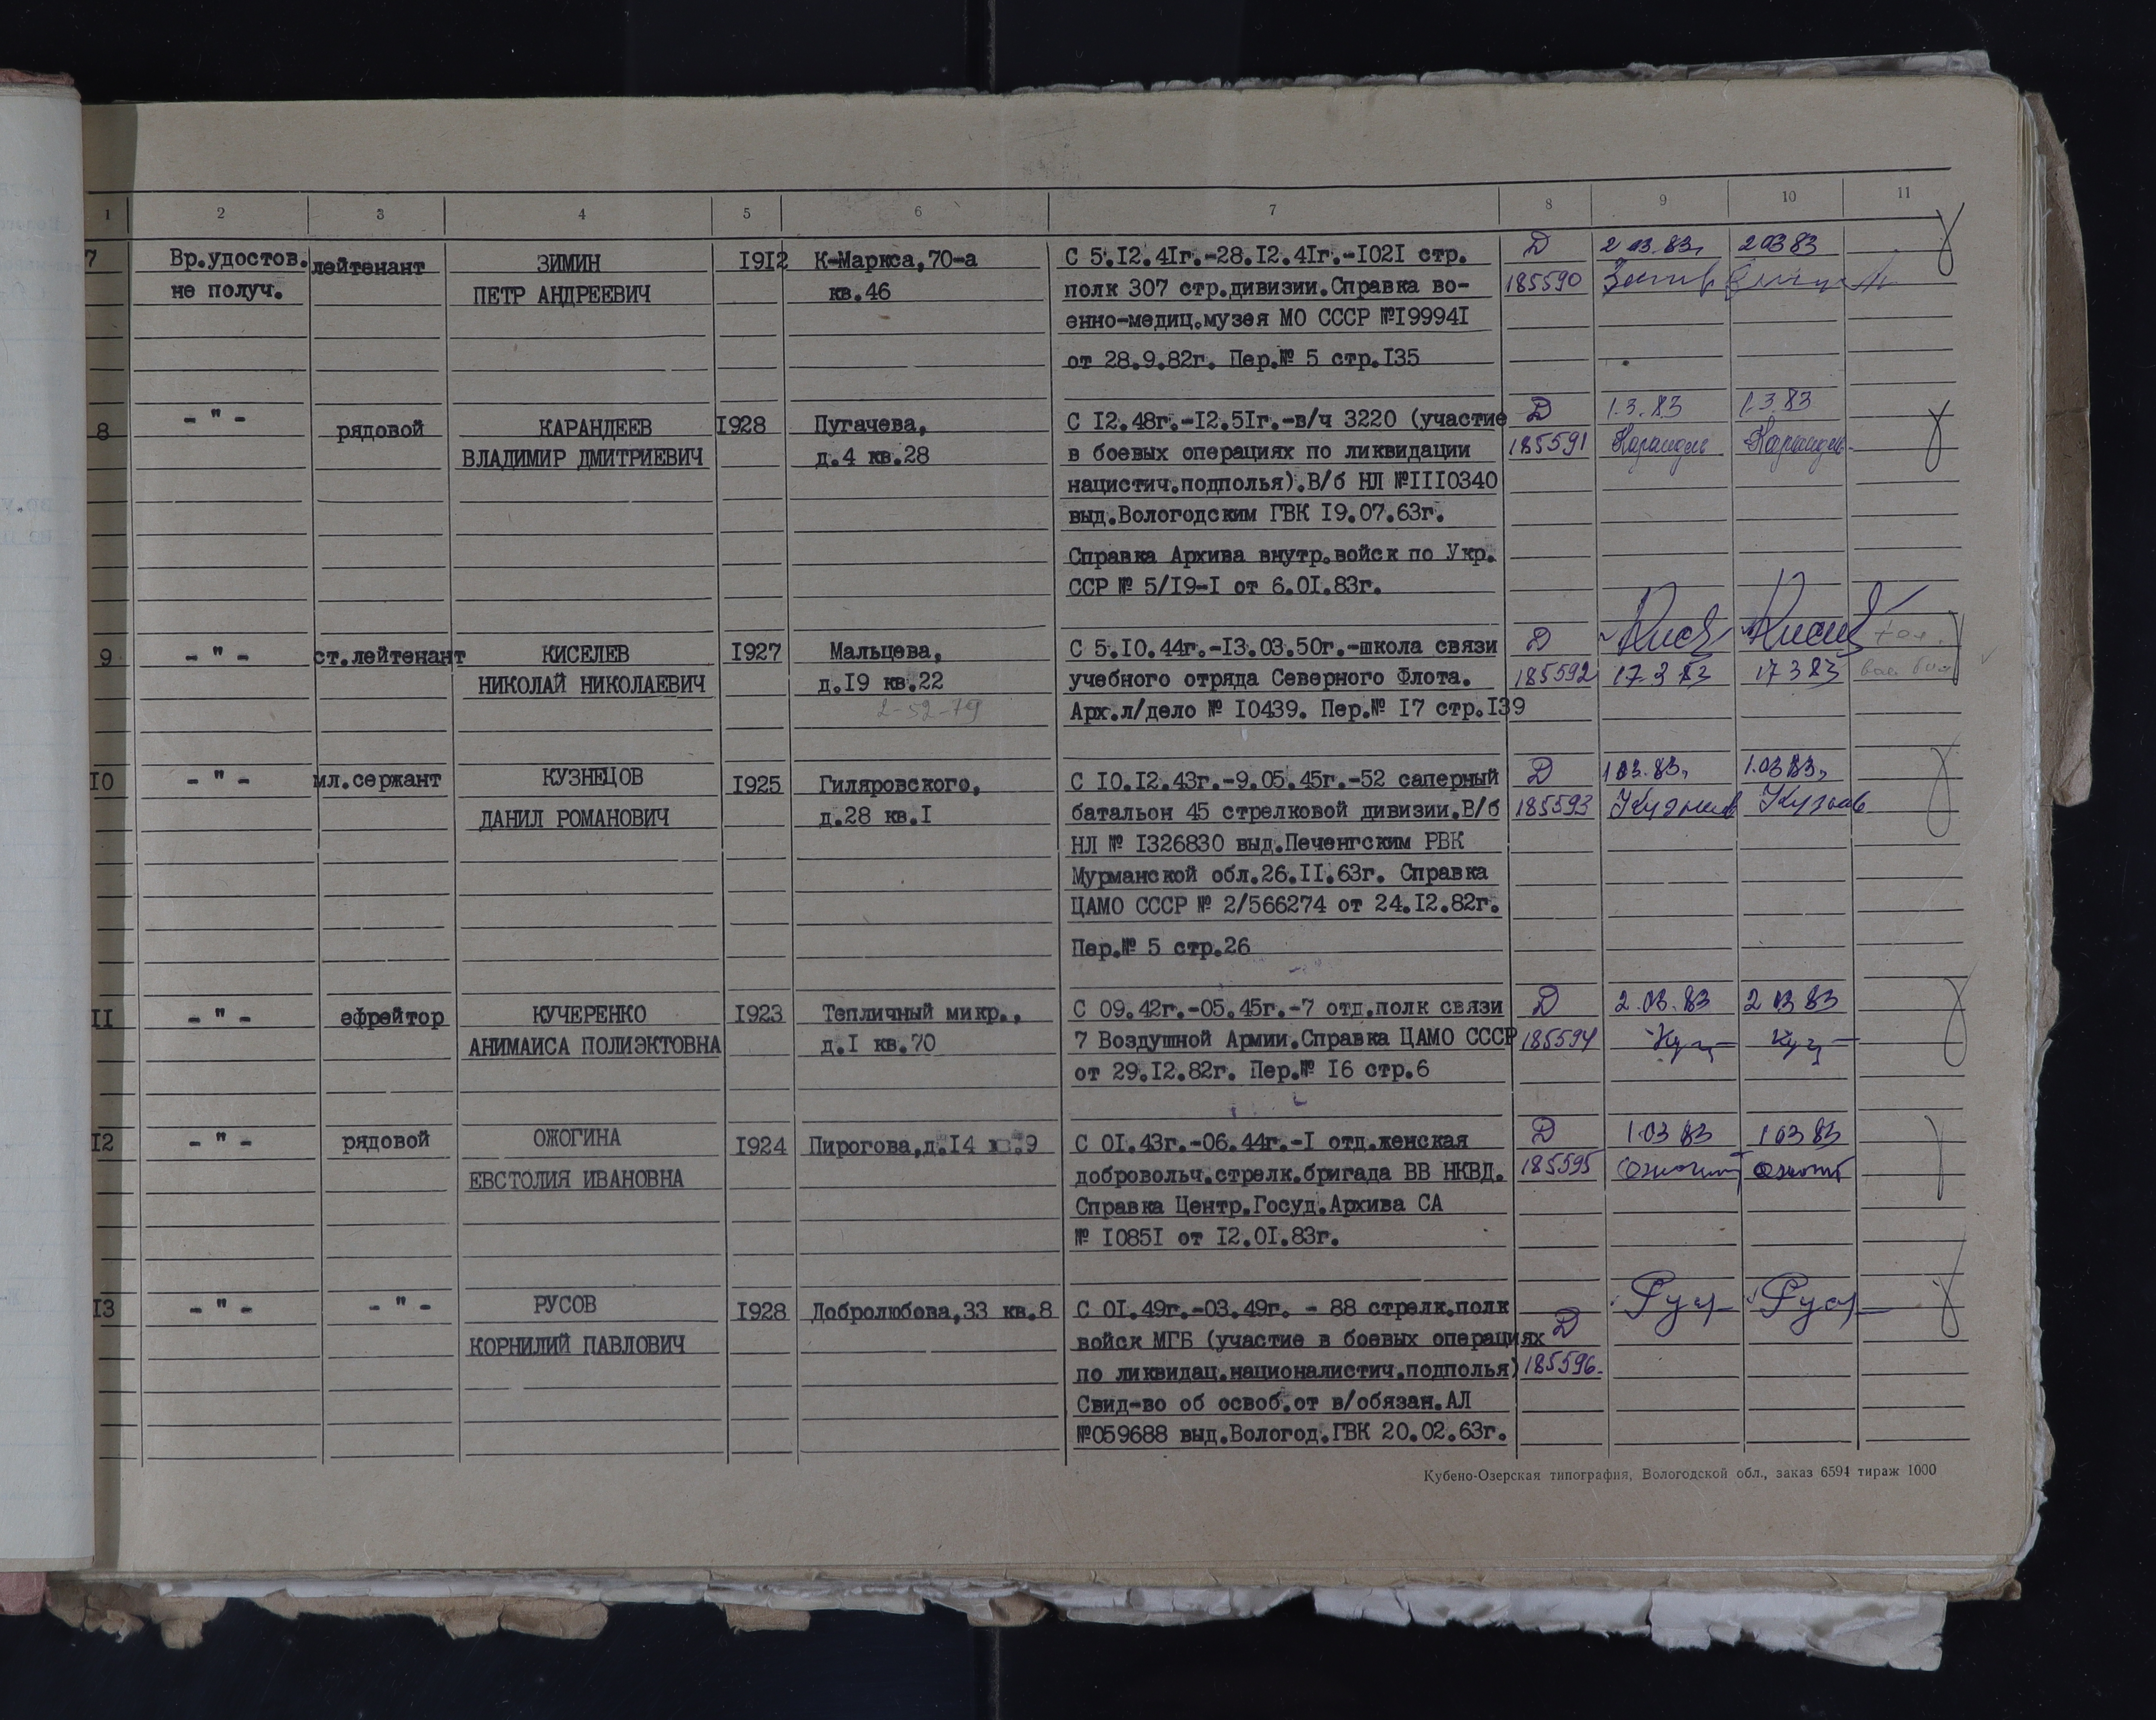 1 2 3 4 5 6 7 8 9 10 11
7 Вр.удостов. лейтенант ЗИМИН 1912 К-Маркса,70-а С 5.12.41г.-28.12.41г.-1021 стр. Д 2.03.83. 2 03 83
не получ. ПЕТР АНДРЕЕВИЧ кв.46 полк 307 стр.дивизии.Справка во- 185590
енно-медиц.музея МО СССР №199941
от 28.9.82г. Пер.№ 5 стр.135
8 - " - рядовой КАРАНДЕЕВ 1928 Пугачева, С 12.48г.-12.51г.-в/ч 3220 (участие Д 1.3.83 1.3.83
ВЛАДИМИР ДМИТРИЕВИЧ д.4 кв.28 в боевых операциях по ликвидации 185591
нацистич.подполья).В/б НЛ №1110340
выд.Вологодским ГВК 19.07.63г.
Справка Архива внутр.войск по Укр.
ССР № 5/19-1 от 6.01.83г.
9 - " - ст.лейтенант КИСЕЛЕВ 1927 Мальцева, С 5.10.44г.-13.03.50г.-школа связи Д
НИКОЛАЙ НИКОЛАЕВИЧ д.19 кв.22 учебного отряда Северного Флота. 185592 17 3 83 17 3 83
2-52-79 Арх.л/дело № 10439. Пер.№ 17 стр.139
10 - " - мл.сержант КУЗНЕЦОВ 1925 Гиляровского, С 10.12.43г.-9.05.45г.-52 саперный Д 1 03.83. 1.03 83.
ДАНИЛ РОМАНОВИЧ д.28 кв.1 батальон 45 стрелковой дивизии.В/б 185593
НЛ № 1326830 выд.Печенгским РВК
Мурманской обл.26.11.63г. Справка
ЦАМО СССР № 2/566274 от 24.12.82г.
Пер.№ 5 стр.26
11 - " - ефрейтор КУЧЕРЕНКО 1923 Тепличный микр., С 09.42г.-05.45г.-7 отд.полк связи Д 2.03.83 2 03 83
АНИМАИСА ПОЛИЭКТОВНА д.1 кв.70 7 Воздушной Армии.Справка ЦАМО СССР 185594
от 29.12.82г. Пер.№ 16 стр.6
12 - " - рядовой ОЖОГИНА 1924 Пирогова,д.14 кв.9 С 01.43г.-06.44г.-1 отд.женская Д 1.03 83 1 03 83
ЕВСТОЛИЯ ИВАНОВНА добровольч.стрелк.бригада ВВ НКВД. 185595
Справка Центр.Госуд.Архива СА
№ 10851 от 12.01.83г.
13 - " - - " - РУСОВ 1928 Добролюбова,33 кв.8 С 01.49г.-03.49г. - 88 стрелк.полк
КОРНИЛИЙ ПАВЛОВИЧ войск МГБ (участие в боевых операциях Д
по ликвидац.националистич.подполья) 185596.
Свид-во об освоб.от в/обязан.АЛ
№059688 выд.Вологод.ГВК 20.02.63г.
Кубено-Озерская типография, Вологодской обл., заказ 6594 тираж 1000